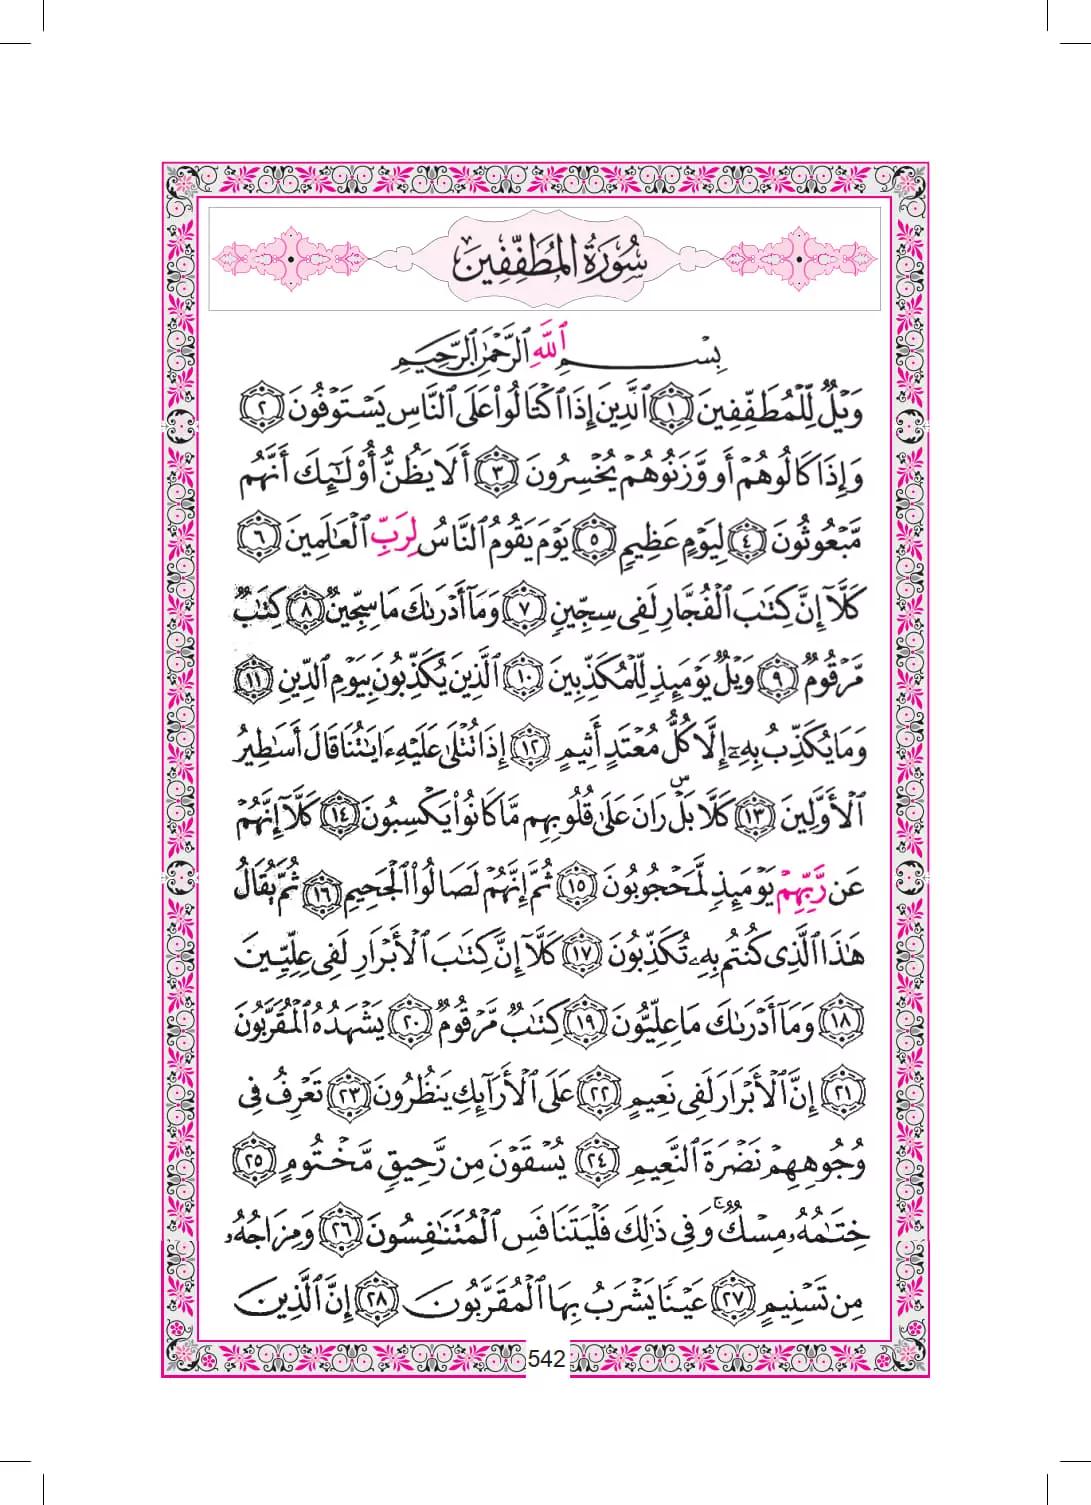 سُورَةُ المُطَفِّفِينَ
بِسْمِ ٱللَّهِ ٱلرَّحْمَٰنِ ٱلرَّحِيمِ
وَيْلٌ لِّلْمُطَفِّفِينَ ١ ٱلَّذِينَ إِذَا ٱكْتَالُوا۟ عَلَى ٱلنَّاسِ يَسْتَوْفُونَ ٢
وَإِذَا كَالُوهُمْ أَو وَّزَنُوهُمْ يُخْسِرُونَ ٣ أَلَا يَظُنُّ أُو۟لَٰٓئِكَ أَنَّهُم
مَّبْعُوثُونَ ٤ لِيَوْمٍ عَظِيمٍ ٥ يَوْمَ يَقُومُ ٱلنَّاسُ لِرَبِّ ٱلْعَٰلَمِينَ ٦
كَلَّآ إِنَّ كِتَٰبَ ٱلْفُجَّارِ لَفِى سِجِّينٍ ٧ وَمَآ أَدْرَىٰكَ مَا سِجِّينٌ ٨ كِتَٰبٌ
مَّرْقُومٌ ٩ وَيْلٌ يَوْمَئِذٍ لِّلْمُكَذِّبِينَ ١٠ ٱلَّذِينَ يُكَذِّبُونَ بِيَوْمِ ٱلدِّينِ ١١
وَمَا يُكَذِّبُ بِهِۦٓ إِلَّا كُلُّ مُعْتَدٍ أَثِيمٍ ١٢ إِذَا تُتْلَىٰ عَلَيْهِ ءَايَٰتُنَا قَالَ أَسَٰطِيرُ
ٱلْأَوَّلِينَ ١٣ كَلَّا بَلْ ۜ رَانَ عَلَىٰ قُلُوبِهِم مَّا كَانُوا۟ يَكْسِبُونَ ١٤ كَلَّآ إِنَّهُمْ
عَن رَّبِّهِمْ يَوْمَئِذٍ لَّمَحْجُوبُونَ ١٥ ثُمَّ إِنَّهُمْ لَصَالُوا۟ ٱلْجَحِيمِ ١٦ ثُمَّ يُقَالُ
هَٰذَا ٱلَّذِى كُنتُم بِهِۦ تُكَذِّبُونَ ١٧ كَلَّآ إِنَّ كِتَٰبَ ٱلْأَبْرَارِ لَفِى عِلِّيِّينَ
١٨ وَمَآ أَدْرَىٰكَ مَا عِلِّيُّونَ ١٩ كِتَٰبٌ مَّرْقُومٌ ٢٠ يَشْهَدُهُ ٱلْمُقَرَّبُونَ
٢١ إِنَّ ٱلْأَبْرَارَ لَفِى نَعِيمٍ ٢٢ عَلَى ٱلْأَرَآئِكِ يَنظُرُونَ ٢٣ تَعْرِفُ فِى
وُجُوهِهِمْ نَضْرَةَ ٱلنَّعِيمِ ٢٤ يُسْقَوْنَ مِن رَّحِيقٍ مَّخْتُومٍ ٢٥
خِتَٰمُهُۥ مِسْكٌ ۚ وَفِى ذَٰلِكَ فَلْيَتَنَافَسِ ٱلْمُتَنَٰفِسُونَ ٢٦ وَمِزَاجُهُۥ
مِن تَسْنِيمٍ ٢٧ عَيْنًا يَشْرَبُ بِهَا ٱلْمُقَرَّبُونَ ٢٨ إِنَّ ٱلَّذِينَ
542